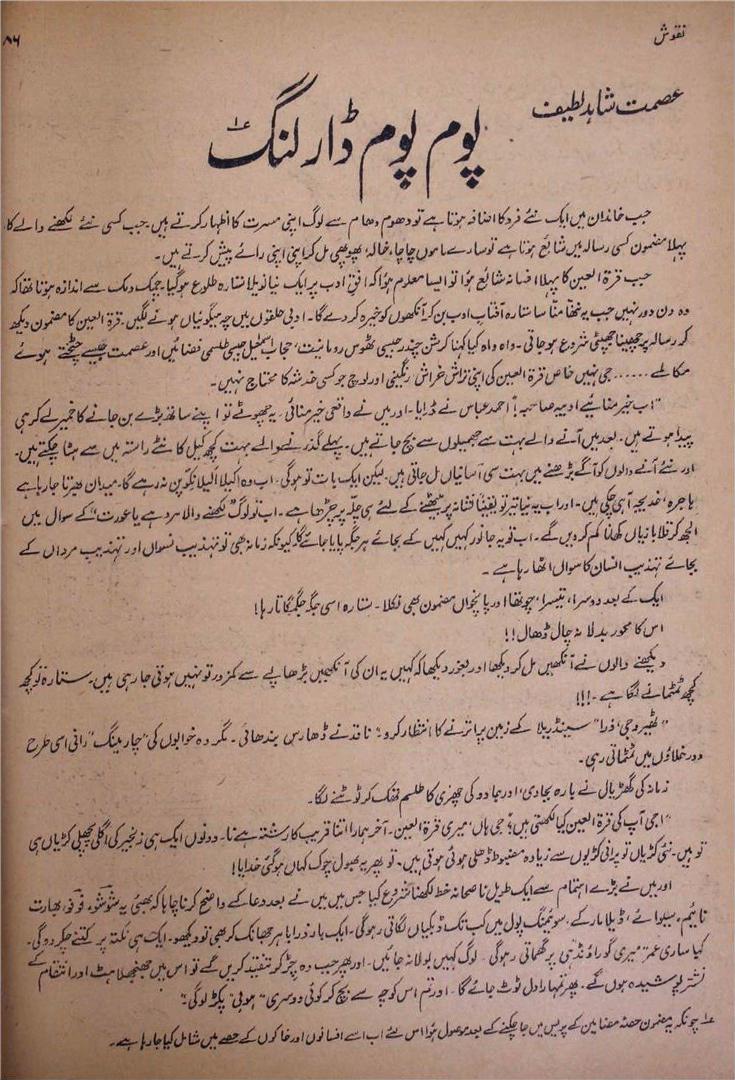 نقوش
۸۶
عصمت شاہد لطیف
پوم پوم ڈارلنگ ؎۱
جب خاندان میں ایک نئے فرد کا اضافہ ہوتا ہے تو دھوم دھام سے لوگ اپنی مسرت کا اظہار کرتے ہیں۔ جب کسی نئے لکھنے والے کا
پہلا مضمون کسی رسالہ میں شائع ہوتا ہے تو سارے ماموں چاچا، خالہ، پھوپھی مل کر اپنی اپنی رائے پیش کرتے ہیں۔
جب قرۃ العین کا پہلا افسانہ شائع ہوا تو ایسا معلوم ہوا کہ افق ادب پر ایک نیا نویلا ستارہ طلوع ہو گیا۔ چمک دمک سے اندازہ ہوتا تھا کہ
وہ دن دور نہیں جب یہ ننھا منا سا ستارہ آفتاب ادب بن کر آنکھوں کو خیرہ کر دے گا۔ ادبی حلقوں میں چہ میگوئیاں ہونے لگیں۔ قرۃ العین کا مضمون دیکھ
کر رسالہ پر چھینا جھپٹی شروع ہو جاتی۔ واہ واہ کیا کہنا کرشن چندر جیسی ٹھوس رومانیت، حجاب اسمٰعیل جیسی طلسمی فضائیں اور عصمت جیسے چٹختے ہوئے
مکالمے ...... جی نہیں خاص قرۃ العین کی اپنی تراش خراش، رنگینی اور لوچ جو کسی خدشہ کا محتاج نہیں۔
"اب خیر منائیے ادیبہ صاحبہ" احمد عباس نے ڈرایا۔ اور میں نے واقعی خیر منائی۔ یہ چھوٹے تو اپنے ساتھ بڑے بن جانے کا خمیر لے کر ہی
پیدا ہوتے ہیں۔ بعد میں آنے والے بہت سے جھمیلوں سے بچ جاتے ہیں۔ پہلے گذرنے والے بہت کچھ کیل کانٹے راستہ میں سے ہٹا چکتے ہیں۔
اور نئے آنے والوں کو آگے بڑھنے میں بہت سی آسانیاں مل جاتی ہیں۔ لیکن ایک بات تو ہو گی۔ اب وہ اکیلا اکیلا نکوپن نہ رہے گا۔ میدان بھرتا جا رہا ہے
ہاجرہ، خدیجہ آ ہی چکی ہیں۔ اور اب یہ نیا تیر تو یقیناً نشانہ پر بیٹھنے کے لئے ہی چلہ پر چڑھا ہے۔ اب تو لوگ "لکھنے والا مرد ہے یا عورت" کے سوال میں
الجھ کر قلابازیاں کھانا کم کر دیں گے۔ اب تو یہ جانور کہیں کہیں کے بجائے ہر جگہ پایا جائے گا کیونکہ زمانہ بھی تو تہذیب نسواں اور تہذیب مرداں کے
بجائے تہذیب انسان کا سوال اٹھا رہا ہے۔
ایک کے بعد دوسرا، تیسرا، چوتھا اور پانچواں مضمون بھی نکلا۔ ستارہ اسی جگہ جگمگاتا رہا!
اس کا محور بدلا نہ چال ڈھال!!
دیکھنے والوں نے آنکھیں مل کر دیکھا اور بغور دیکھا کہ کہیں یہ ان کی آنکھیں بڑھاپے سے کمزور تو نہیں ہوتی جا رہی ہیں۔ ستارہ تو کچھ
کچھ ٹمٹمانے لگا ہے۔!!!
"ٹھیرو جی ذرا" سینڈریلا کے زمین پر اترنے کا انتظار کرو" ناقد نے ڈھارس بندھائی۔ مگر وہ خوابوں کی "چارمینگ" رانی اسی طرح
دور خلاؤں میں ٹمٹماتی رہی۔
زمانہ کی گھڑیال نے بارہ بجا دئیے، اور جادو کی چھڑی کا طلسم تھک کر ٹوٹنے لگا۔
"اجی آپ کی قرۃ العین کیا لکھتی ہیں؟" جی ہاں، میری قرۃ العین۔ آخر ہمارا اتنا قریب کا رشتہ ہے نا۔ دونوں ایک ہی زنجیر کی اگلی پچھلی کڑیاں ہی
تو ہیں۔ نئی کڑیاں تو پرانی کڑیوں سے زیادہ مضبوط ڈھلی ہوئی ہوتی ہیں۔ تو پھر یہ بھول چوک کہاں ہو گئی خدایا!
اور میں نے بڑے اہتمام سے ایک طویل ناصحانہ خط لکھنا شروع کیا جس میں میں نے بعد دعا کے واضح کرنا چاہا کہ بھئی یہ شوشو، فوفو، بھارت
ناٹیم، سیلوائے، ڈیلامار کے۔ سوئمنگ پول میں کب تک ڈبکیاں لگاتی رہو گی۔ ایک بار ذرا باہر جھانک کر بھی تو دیکھو۔ ایک ہی نکتہ پر کتنے چکر دو گی۔
کیا ساری عمر میری گو راؤنڈ ہی پر گھماتی رہو گی۔ لوگ کہیں بولا نہ جائیں۔ اور پھر جب وہ چڑ کر تنقید کریں گے تو اس میں جھنجھلاہٹ اور انتقام کے
نشتر پوشیدہ ہوں گے۔ پھر تمہارا دل ٹوٹ جائے گا۔ اور تم اس کوچہ سے بچ کر کوئی دوسری "ہوبی" پکڑ لو گی۔"
؎۱ چونکہ یہ مضمون حصۂ مضامین کے پریس میں جا چکنے کے بعد موصول ہوا اس لئے اب اسے افسانوں اور خاکوں کے حصے میں شامل کیا جا رہا ہے۔